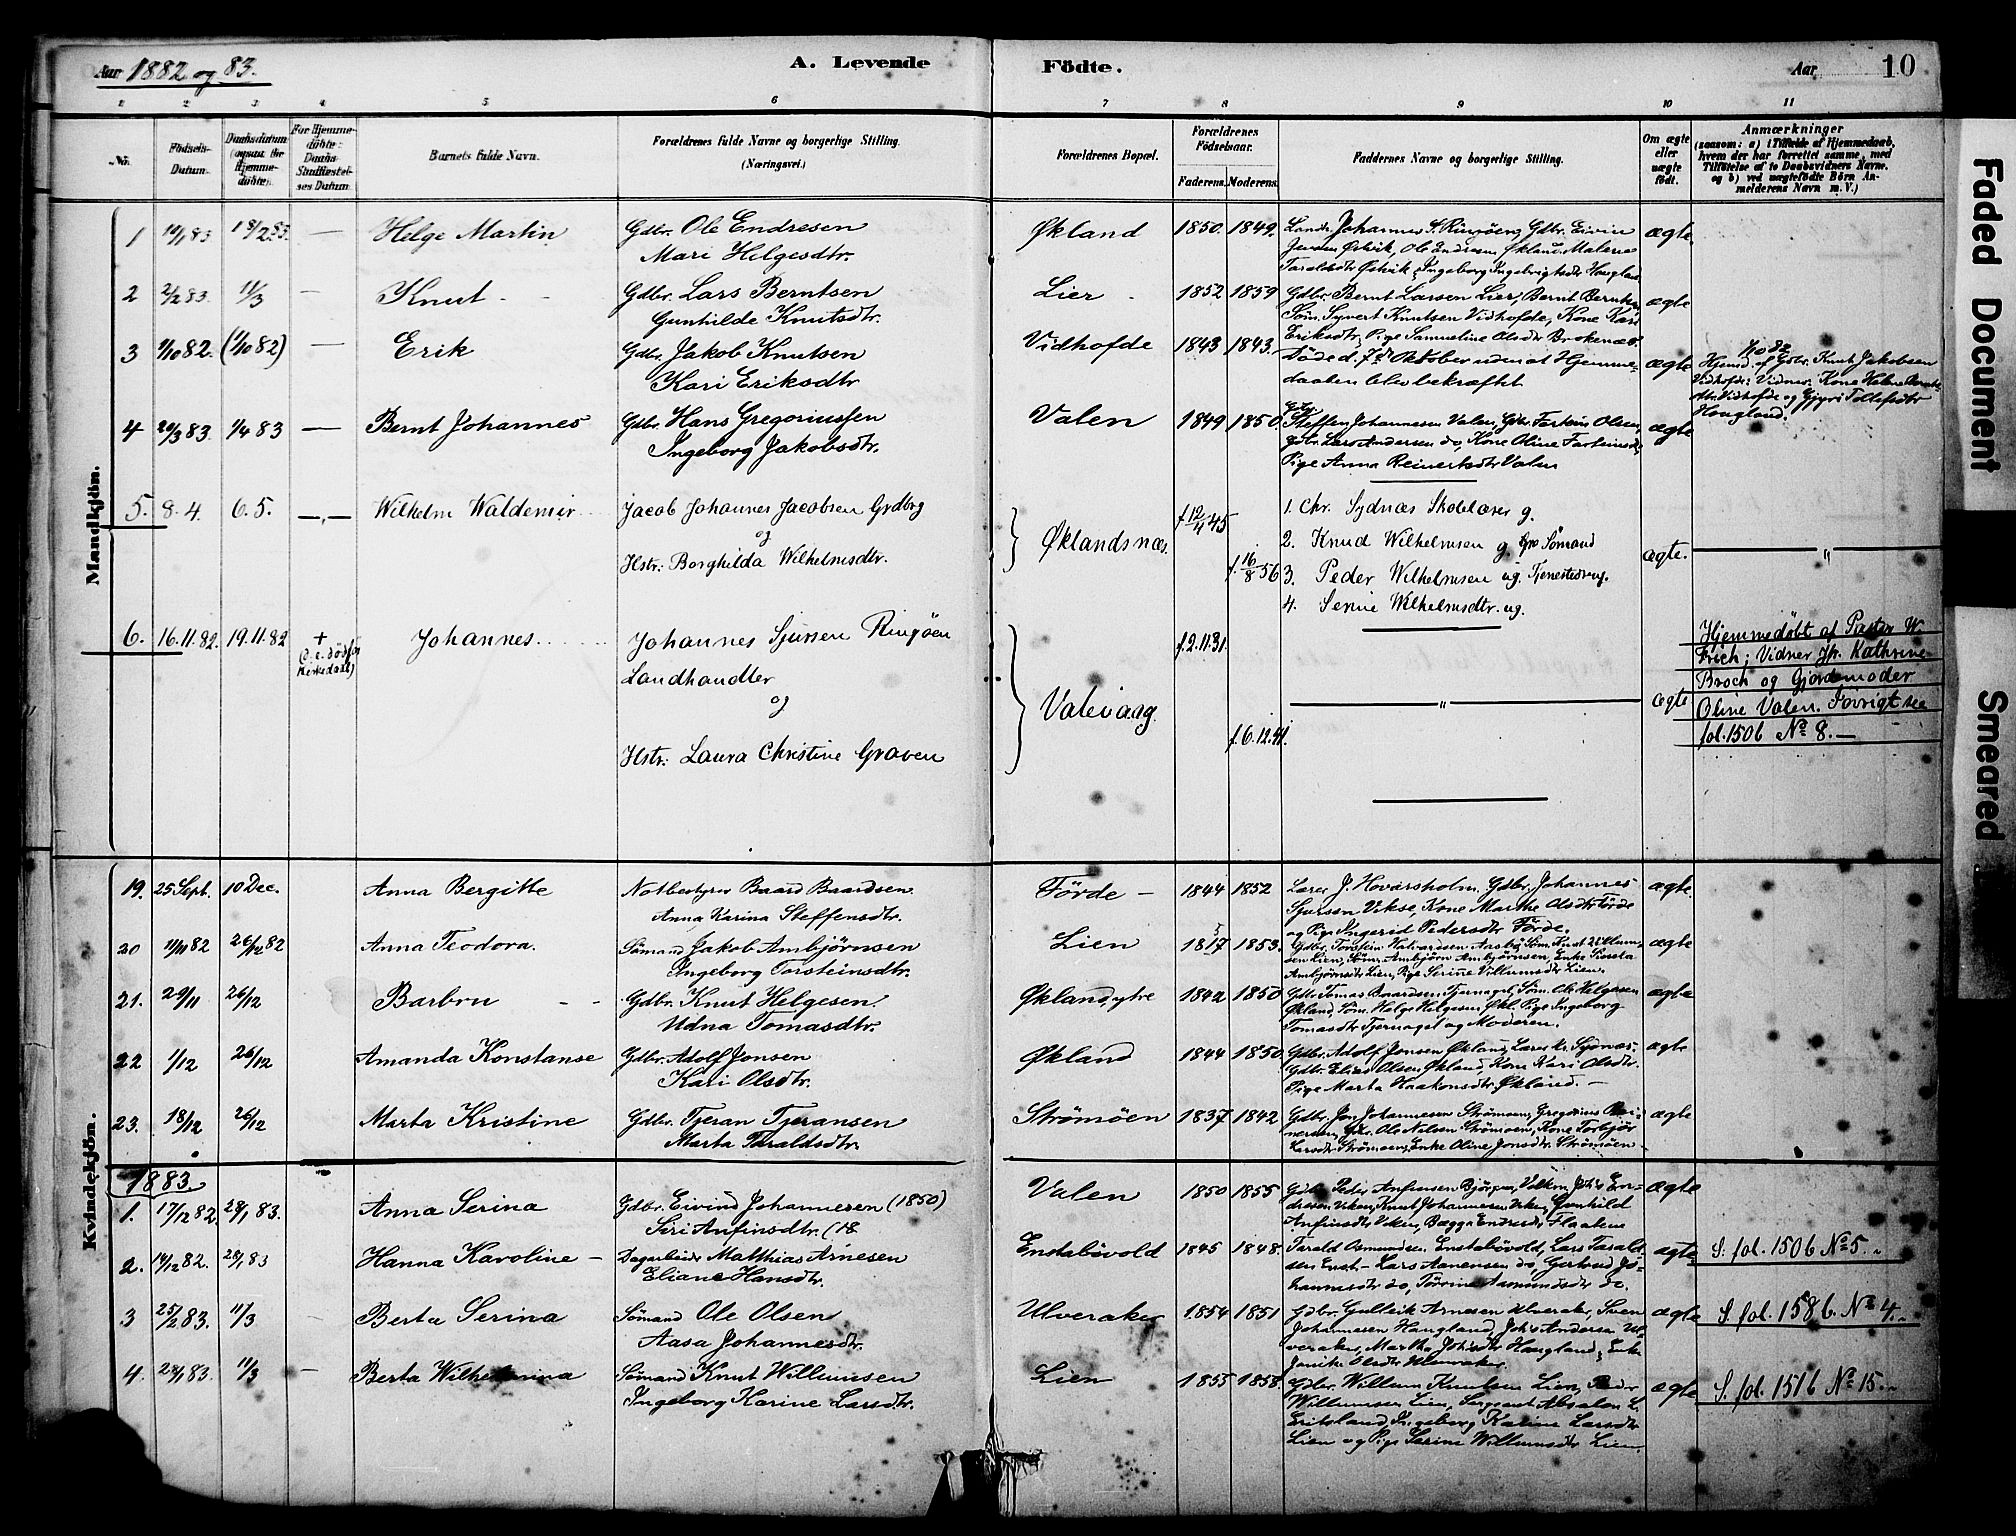 Aar 1882 og 83.
A. Levende Födte.
Aar 10
1 2 3 4 5 6 7 8 9 10 11
No.
Födsels-Datum.
Daabsdatum (ogsaa for Hjemme-döbte).
For Hjemme-döbte: Daabs Stadfæstel-ses Datum.
Barnets fulde Navn.
Forældrenes fulde Navne og borgerlige Stilling.
(Næringsvei.)
Forældrenes Bopæl.
Forældrenes Födselsaar.
Faderens. Moderens.
Faddernes Navne og borgerlige Stilling.
Om ægte eller uægte födt.
Anmærkninger
(saasom: a) i Tilfælde af Hjemmedaab, hvem der har forrettet samme, med Tilföielse af to Daabsvidners Navne, og b) ved uægtefödte Börn Anmelderens Navn m. V.)
Mandkjön.
1 10/1 83 18/2 83. — Helge Martin Gdbr. Ole Endresen Økland 1850. 1849. Landh. Johannes S. Ringøen, Gdbr. Eivin ægte
Mari Helgesdtr. Jensen Østvik, Ole Endresen Økland, Malene
Taraldsdtr Østvik, Ingeborg Ingebrigtsdtr Haugland
2 2/2 83. 11/3 — Knut Gdbr. Lars Berntsen Lier 1852 1859 Gdbr. Bernt Larsen Lier, Bernt Berntsen ægte
Gunhilde Knutsdtr. Søm. Syvert Knutsen Vidhofde, Kone Kari
Eriksdtr, Pige Samueline Olsdtr Brokenæs.
3 1/10 82. (1/10 82) — Erik Gdbr. Jakob Knutsen Vidhofde 1843 1843. Døde d. 7de Oktober uden at Hjemme- ægte
Kari Eriksdtr daaben blev bekræftet
1/10 82
Hjemd. af Gdbr. Knut Jakobsen
Vidhofde; Vidner: Kone Helene
Vidhofde og Gjyri Tollefsdtr
Haugland.
4 20/3 83. 1/4 83 — Bernt Johannes Gdbr. Hans Gregoriussen Valen 1849 1850. Gdbr Steffen Johannesen Valen, Gdbr. Olsen, ægte
Ingeborg Jakobsdtr. Gdbr. Lars Andersen do, Kone Oline
Pige Anna Reinertsdtr Valen
5. 8.4. 6.5. —"— Wilhelm Waldemir Jacob Johannes Jacobsen Grdbrg Øklandsnæs. f. 12/4 45 1. Chr. Sydnæs Skolelærer g. ægte. "
og 2. Knud Wilhelmsen g. Sømand
Hstr: Borghilda Wilhelmsdtr. f. 16/8 56 3. Peder Wilhelmsen ug. Tjenestedrng.
4. Serine Wilhelmsdtr. ug.
6. 16.11.82. 19.11.82 + (d. e. død før Kirkedaab) Johannes Johannes Sjursen Ringöen Valevaag. f. 2.11.31. " ægte
Landhandler
og
Hstr: Laura Christine Graven f. 6.12.41.
Hjemmedøbt af Pastor W.
Frich; Vidner Jfr. Kathrine
Broch og Gjordemoder
Oline Valen. Forvrigt see
fol. 1506 No 8. —
Kvindekjön.
19. 25 Sept. 10 Dec. Anna Bergitte Notbestyrer Baard Baardsen Förde — 1844 1852 Lærer J. Hovarsholm, Gdbr. Johannes ægte
Anna Karina Steffensdtr. Sjursen Vikse, Kone Marthe Olsdtr Förde
og Pige Ingerid Pedersdtr Förde.
20 11/11 82 26/12 82 Anna Teodora. Sømand Jakob Ambjørnsen Lien 1817 1853. Gdbr. Torstein Halvardsen Aasbø, Søm. Knut Willum- ægte
Ingeborg Torsteinsdtr. sen Lien, Søm. Ambjørn Ambjørnsen, Enke Sissela
Ambjørnsdtr Lien, Pige Serine Villumsdtr Lien.
21. 29/11 26/12 Barbru Gdbr. Knut Helgesen. Økland, ytre 1842 1850 Gdbr. Tomas Baardsen Tjernagel, Søm. Ole Helgesen ægte
Udna Tomasdtr. Økland, Søm. Helge Helgesen Økl. Pige Ingeborg
Tomasdtr Tjernagel og Moderen.
22 1/12 26/12 Amanda Konstanse Gdbr. Adolf Jonsen Økland 1844 1850 Gdbr. Adolf Jonsen Økland, Lærer Kr. Sydnæs, ægte
Kari Olsdtr. Gdbr. Elias Olsen Økland, Kone Kari Olsdtr.
Pige Marta Haakonsdtr. Økland. —
23. 18/12 26/12 Marta Kristine Gdbr. Tjeran Tjeransen Strømöen 1837 1842 Gdbr. Jon Johannesen Strømøen, Gregorius ægte
Marta Taraldsdtr. Gdbr. Ole Nilsen Strømøen, Kone Torbjør
Larsdtr Strømøen, Enke Oline Jonsdtr. Strømöen
1883.
1. 17/12 82. 28/1 83. Anna Serina Gdbr. Eivind Johannesen (1850) Valen 1850 1855 Gdbr. Peder Anfinsen Bjørgen, ægte
Siri Anfinsdtr. (18 Knut Johannesen Viken, Gunhild
Anfinsdtr Viken, Endresdtr Flaatene
2. 14/12 82. 28/1 83 Hanna Karoline — Dagarbeider Matthias Arnesen Enstabövold 1845 1848. Tarald Osmundsen Enstabövold, Lars Tarald- ægte S. fol. 1506 No 5.
Eliane Hansdtr. sen Enst. Lars Aanensen do, Gertrud Jo-
hannesdtr do, Törrine Aamundsdtr do.
3 25/2 83. 11/3 Berta Serina Sømand Ole Olsen Ulveraker 1854 1851 Gdbr. Gullik Arnesen Ulveraker, Sven ægte S. fol. 1586. No 4.
Aasa Johannesdtr. Johannesen Haugland, Johs Andersen Ul-
veraker, Martha Johsdtr Haugland, Enke
Olsdtr Ulveraker.
4. 28/1 83. 11/3 — Berta Wilhelmina Sømand Knut Willumsen Lien 1855 1858. Gdbr. Willum Knutsen Lien, Peder ægte S. fol. 1516 No 15.
Ingeborg Karine Larsdtr. Willumsen Lien, Sergeant Absalon L.
Eritsland, Ingeborg Karine Larsdtr
Lien og Pige Serine Willumsdtr Lien.
Faded Document
Smeared